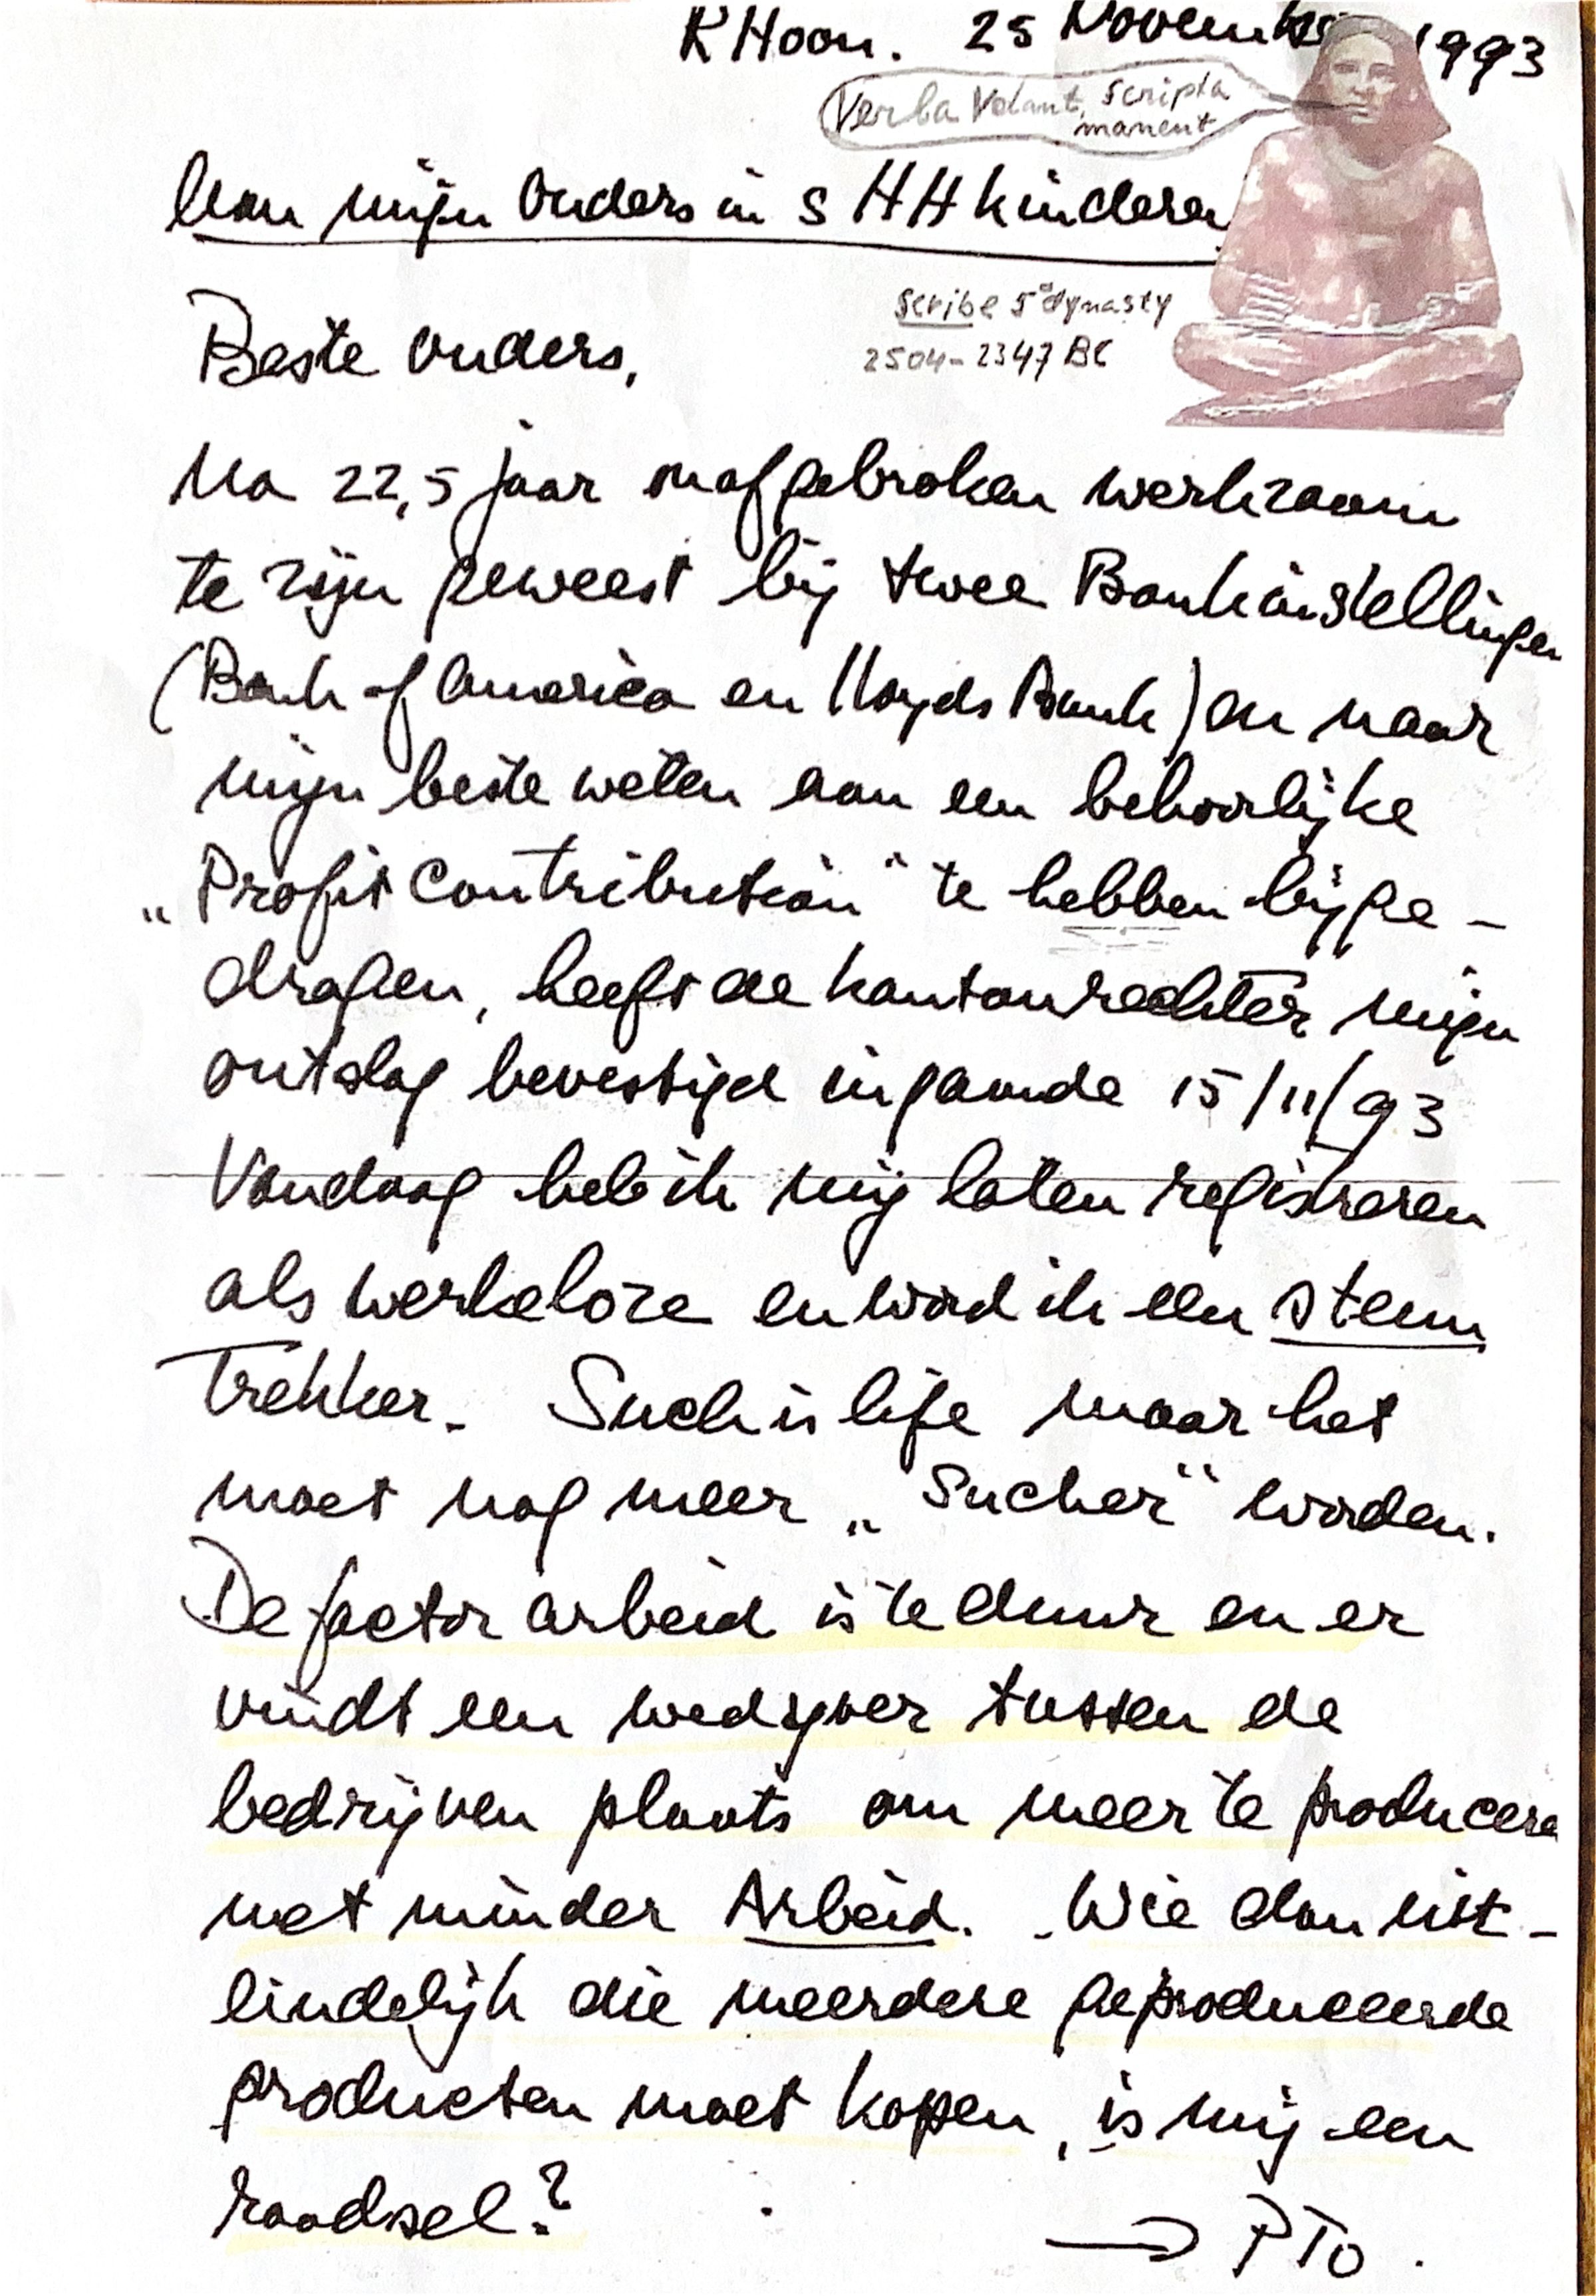 R'Hoon. 25 November 1993
Verba Volant, Scripta
manent
Aan mijn Ouders in s HH kinderen
Scribe 5e dynasty
2504-2347 BC
Beste Ouders,
Na 22,5 jaar onafgebroken werkzaam
te zijn geweest bij twee Bankinstellingen
(Bank of America en Lloyds Bank) en naar
mijn beste weten aan een behoorlijke
„Profit Contribution" te hebben bijge-
dragen, heeft de kantonrechter mijn
ontslag bevestigd ingaande 15/11/93
Vandaag heb ik mij laten registreren
als werkeloze en word ik een steun
Trekker. Such is life maar het
moet nog meer „Sucher" worden.
De factor arbeid is te duur en er
vindt een wedijver tussen de
bedrijven plaats om meer te produceren
met minder Arbeid. Wie dan uit-
eindelijk die meerdere geproduceerde
producten moet kopen, is mij een
raadsel?
→ PTO.